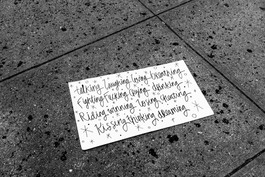 talking laughing loving breathing
Fighting Fucking Crying drinking
Riding winning losing cheating
Kissing thinking dreaming